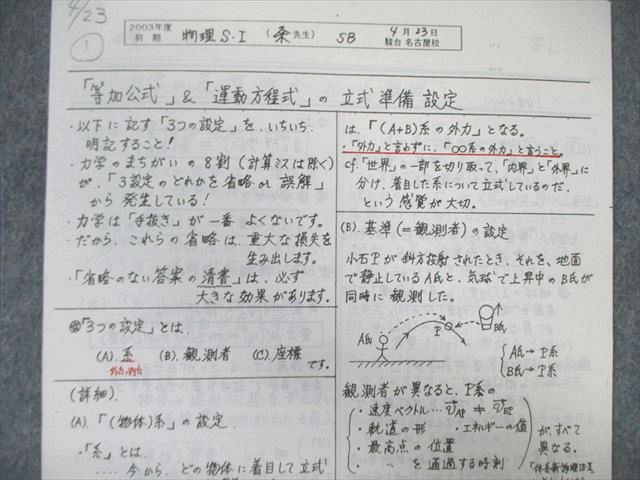 4/23
①
2003年度
前期 物理S・I (桑先生) SB 4月23日
駿台 名古屋校
「等加公式」&「運動方程式」の立式準備設定
・以下に記す「3つの設定」を、いちいち
明記すること!
・力学のまちがいの8割(計算ミスは除く)
が、「3設定のどれかを省略or誤解」
から発生している!
・力学は「手抜き」が一番よくないです。
・だから、これらの省略は、重大な損失を
生み出します。
・「省略のない答案の清書」は、必ず
大きな効果があります。
「3つの設定」とは、
(A).系 (B).観測者 (C).座標
です。
外力・内力
(詳細).
(A).「(物体)系」の設定.
・「系」とは、
‥‥今から、どの物体に着目して立式
は、「(A+B)系の外力」となる。
・「外力」と言わずに、「○○系の外力」と言うこと。
cf.「世界」の一部を切り取って、「内界」と「外界」に
分け、着目した系について立式しているのだ、
という感覚が大切。
(B).基準(=観測者)の設定
小石Pが斜方投射されたとき、それを、地面
で静止しているA氏と、気球で上昇中のB氏が
同時に観測した。
A氏
P
B氏
A氏→P系
B氏→P系
観測者が異なると、P系の
・速度ベクトル…v_AP ≠ v_BP
・軌道の形 ・エネルギーの値
・最高点の位置
・〃 を通過する時刻
が、すべて
異なる。